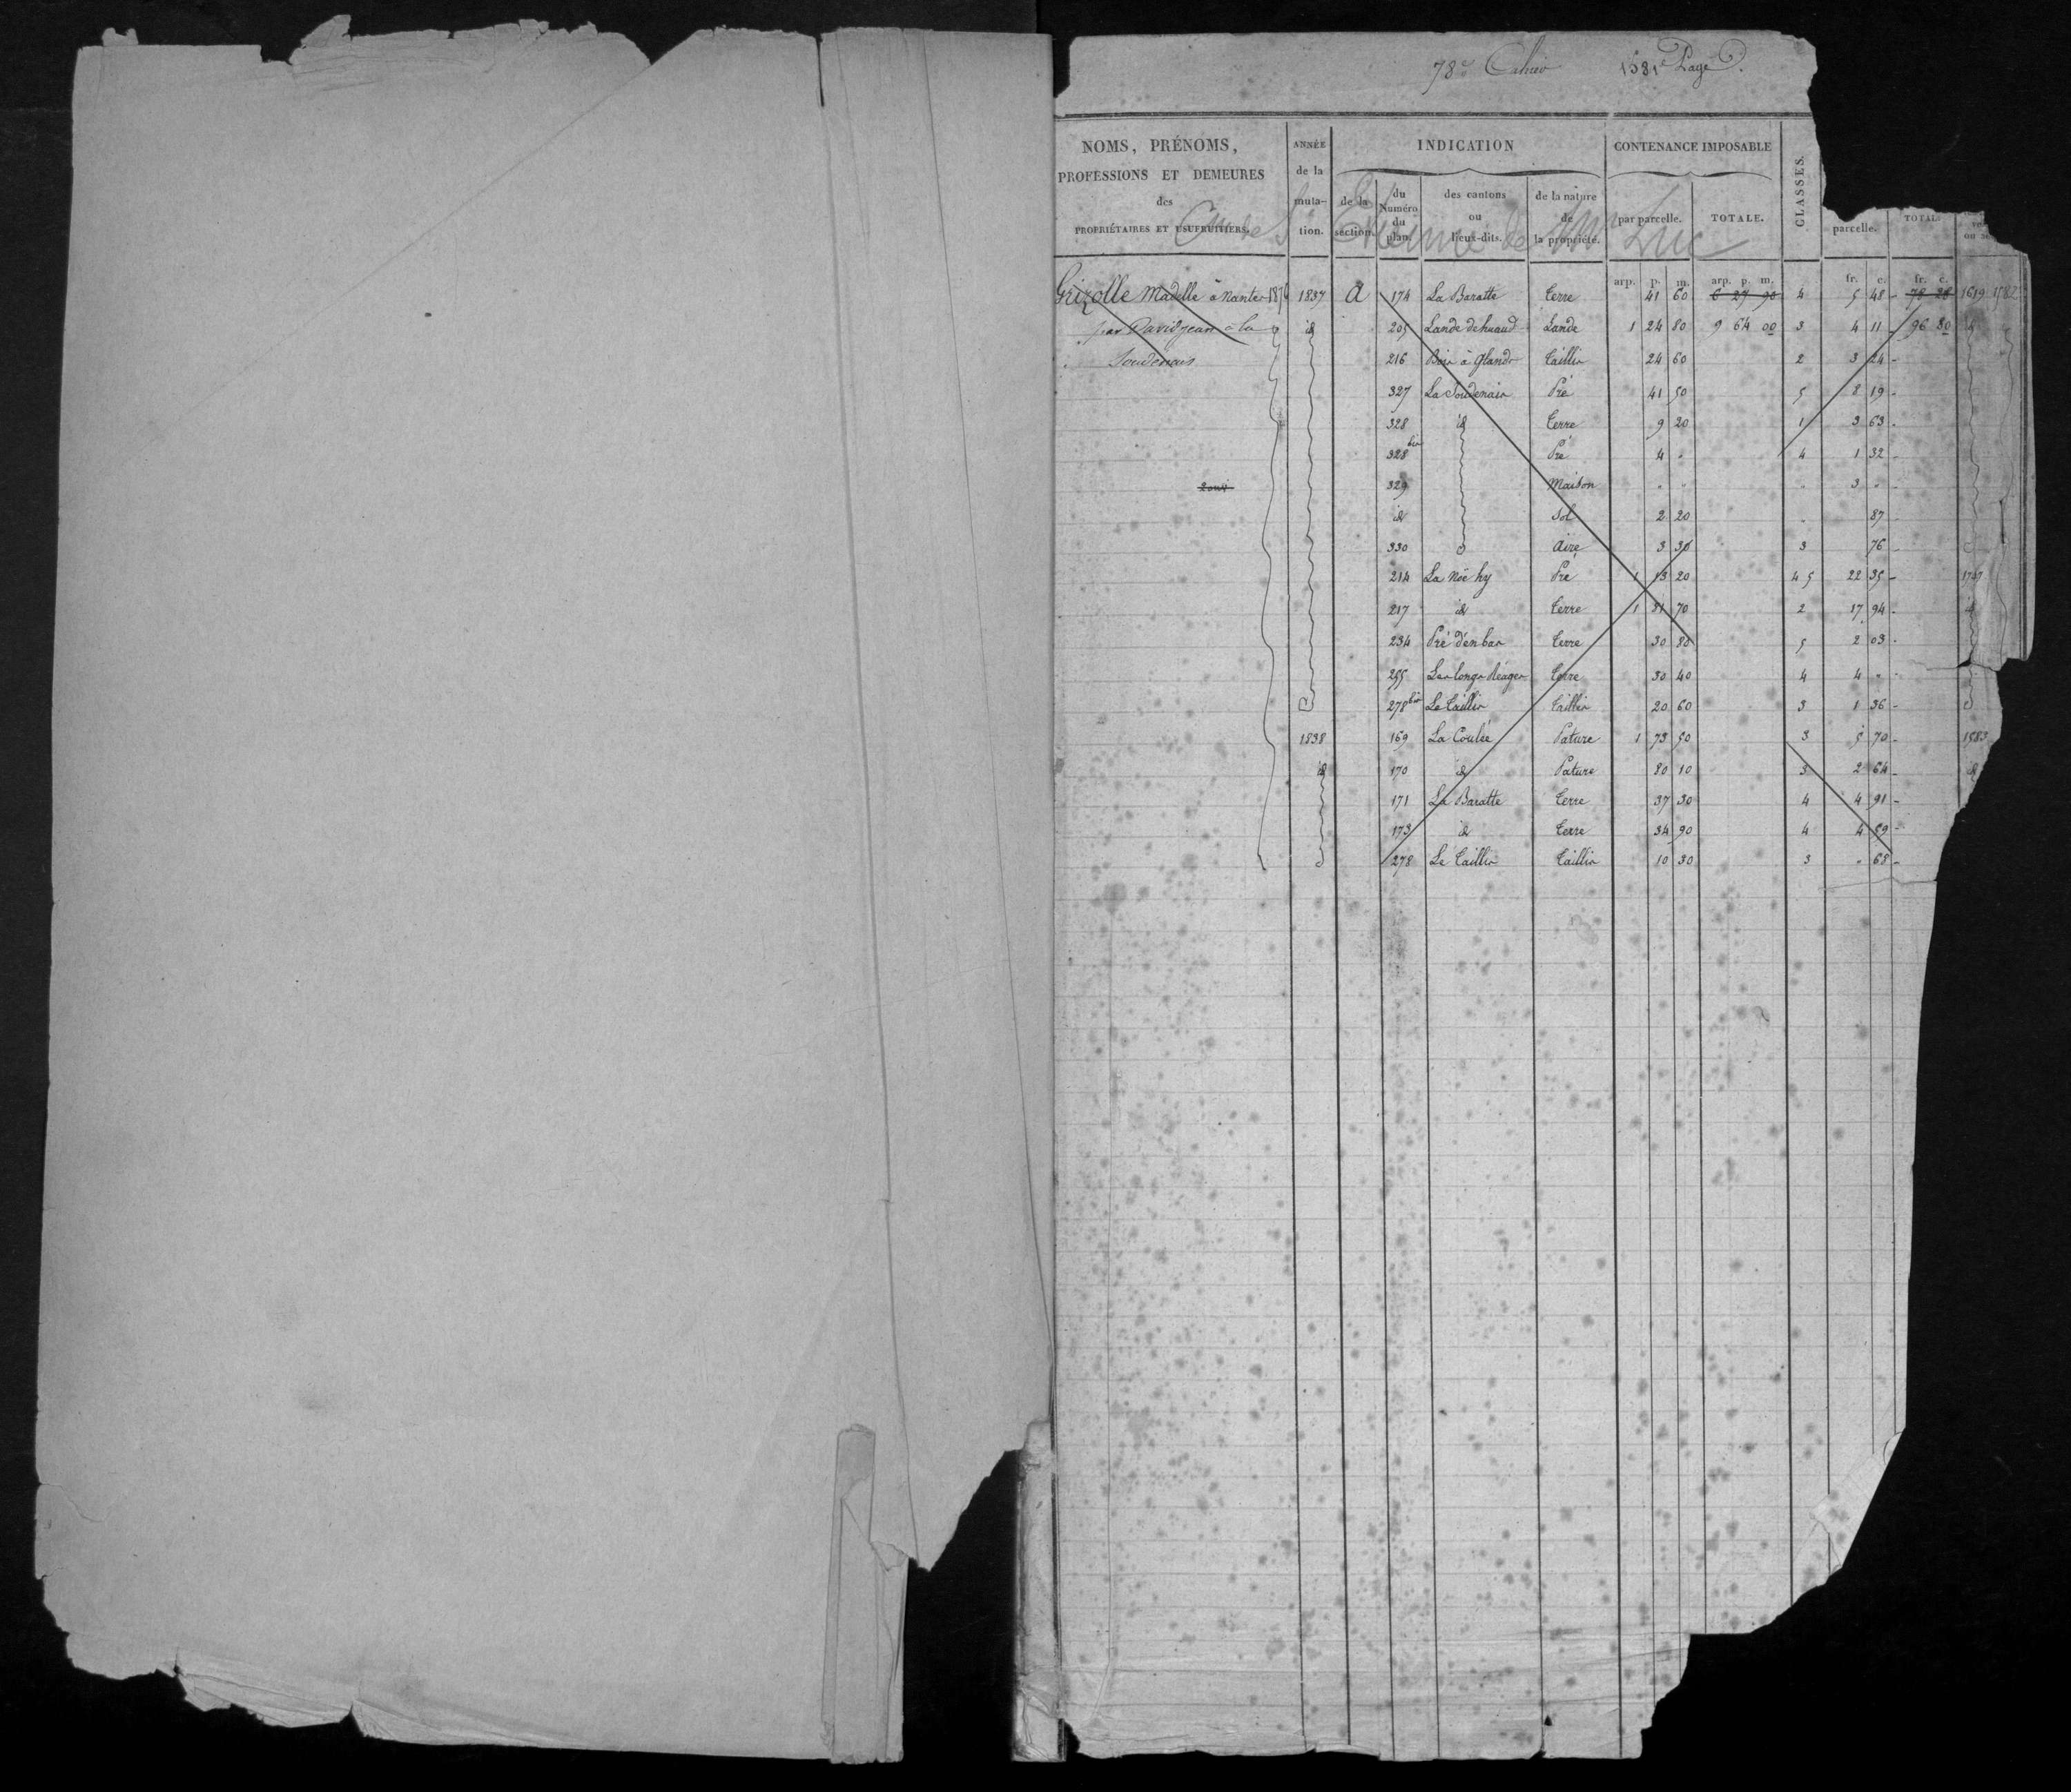 78e Cahier 1581e Page.
NOMS, PRÉNOMS, PROFESSIONS ET DEMEURES des PROPRIÉTAIRES ET USUFRUITIERS.
ANNÉE de la muta-tion.
INDICATION
de la section.
du Numéro du plan.
des cantons ou lieux-dits.
de la nature de la propriété.
CONTENANCE IMPOSABLE
par parcelle.
TOTALE.
CLASSES.
parcelle.
TOTAL
ou
Cne de St Étienne de Mer Luc
arp. p. m. arp. p. m. fr. c. fr. c.
Grizolle Madelle à Nantes 1837 A 174 La Baratte Terre 41 60 6 27 90 4 5 48 78 28 1619 1782
par David jean à la id 205 Lande dehuaud Lande 1 24 80 9 64 00 3 4 11 96 80 id
Soudenais 216 Bois à Glands Taillis 24 60 2 3 24
327 La Soudenais Pré 41 50 5 8 19
328 id Terre 9 20 1 3 63
328 bis Pré 4 " 4 1 32
329 Maison " " " 3 "
id Sol 2 20 " 87
330 Aire 3 30 3 76
214 La Noë hy Pré 1 13 20 4 5 22 35 1747
217 id Terre 1 81 70 2 17 94 id
234 Pré d'en bas Terre 30 80 5 2 03
255 Les longs Réages Terre 30 40 4 4 "
278 bis Le Taillis Taillis 20 60 3 1 36
1838 169 La Coulée Pature 1 73 50 3 5 70 1583
id 170 id Pature 80 10 3 2 64 id
171 La Baratte Terre 37 30 4 4 91
173 id Terre 34 90 4 4 59
278 Le Taillis Taillis 10 30 3 " 68